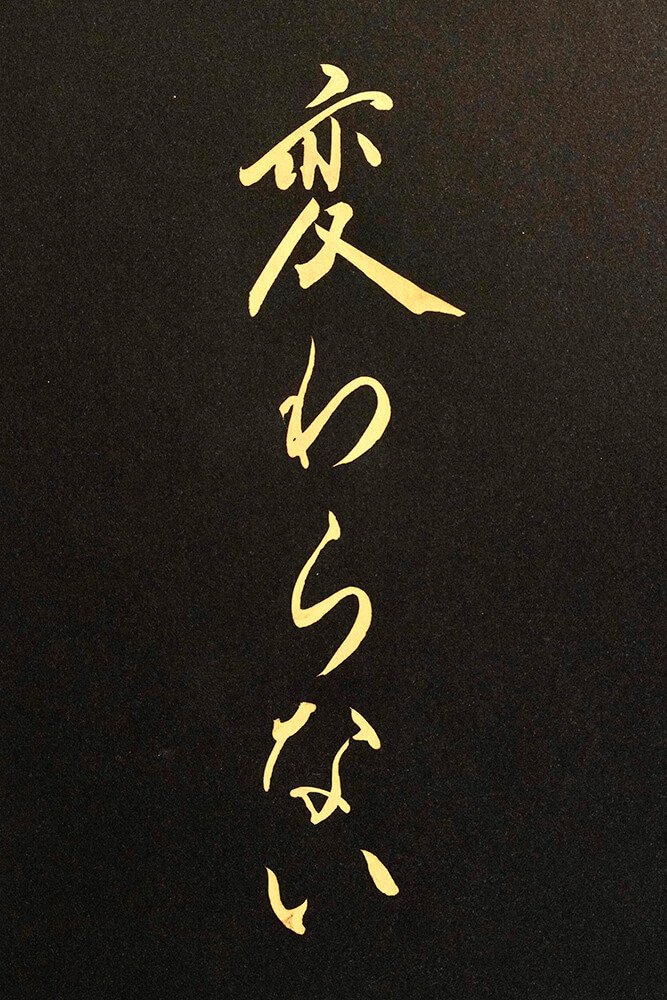 変わらない